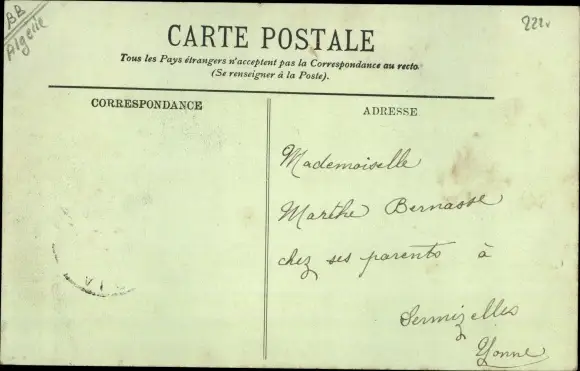 BB
Algérie
222v
CARTE POSTALE
Tous les Pays étrangers n'acceptent pas la Correspondance au recto
(Se renseigner à la Poste).
CORRESPONDANCE
ADRESSE
Mademoiselle
Marthe Bernasse
chez ses parents à
Sermizelles
Yonne